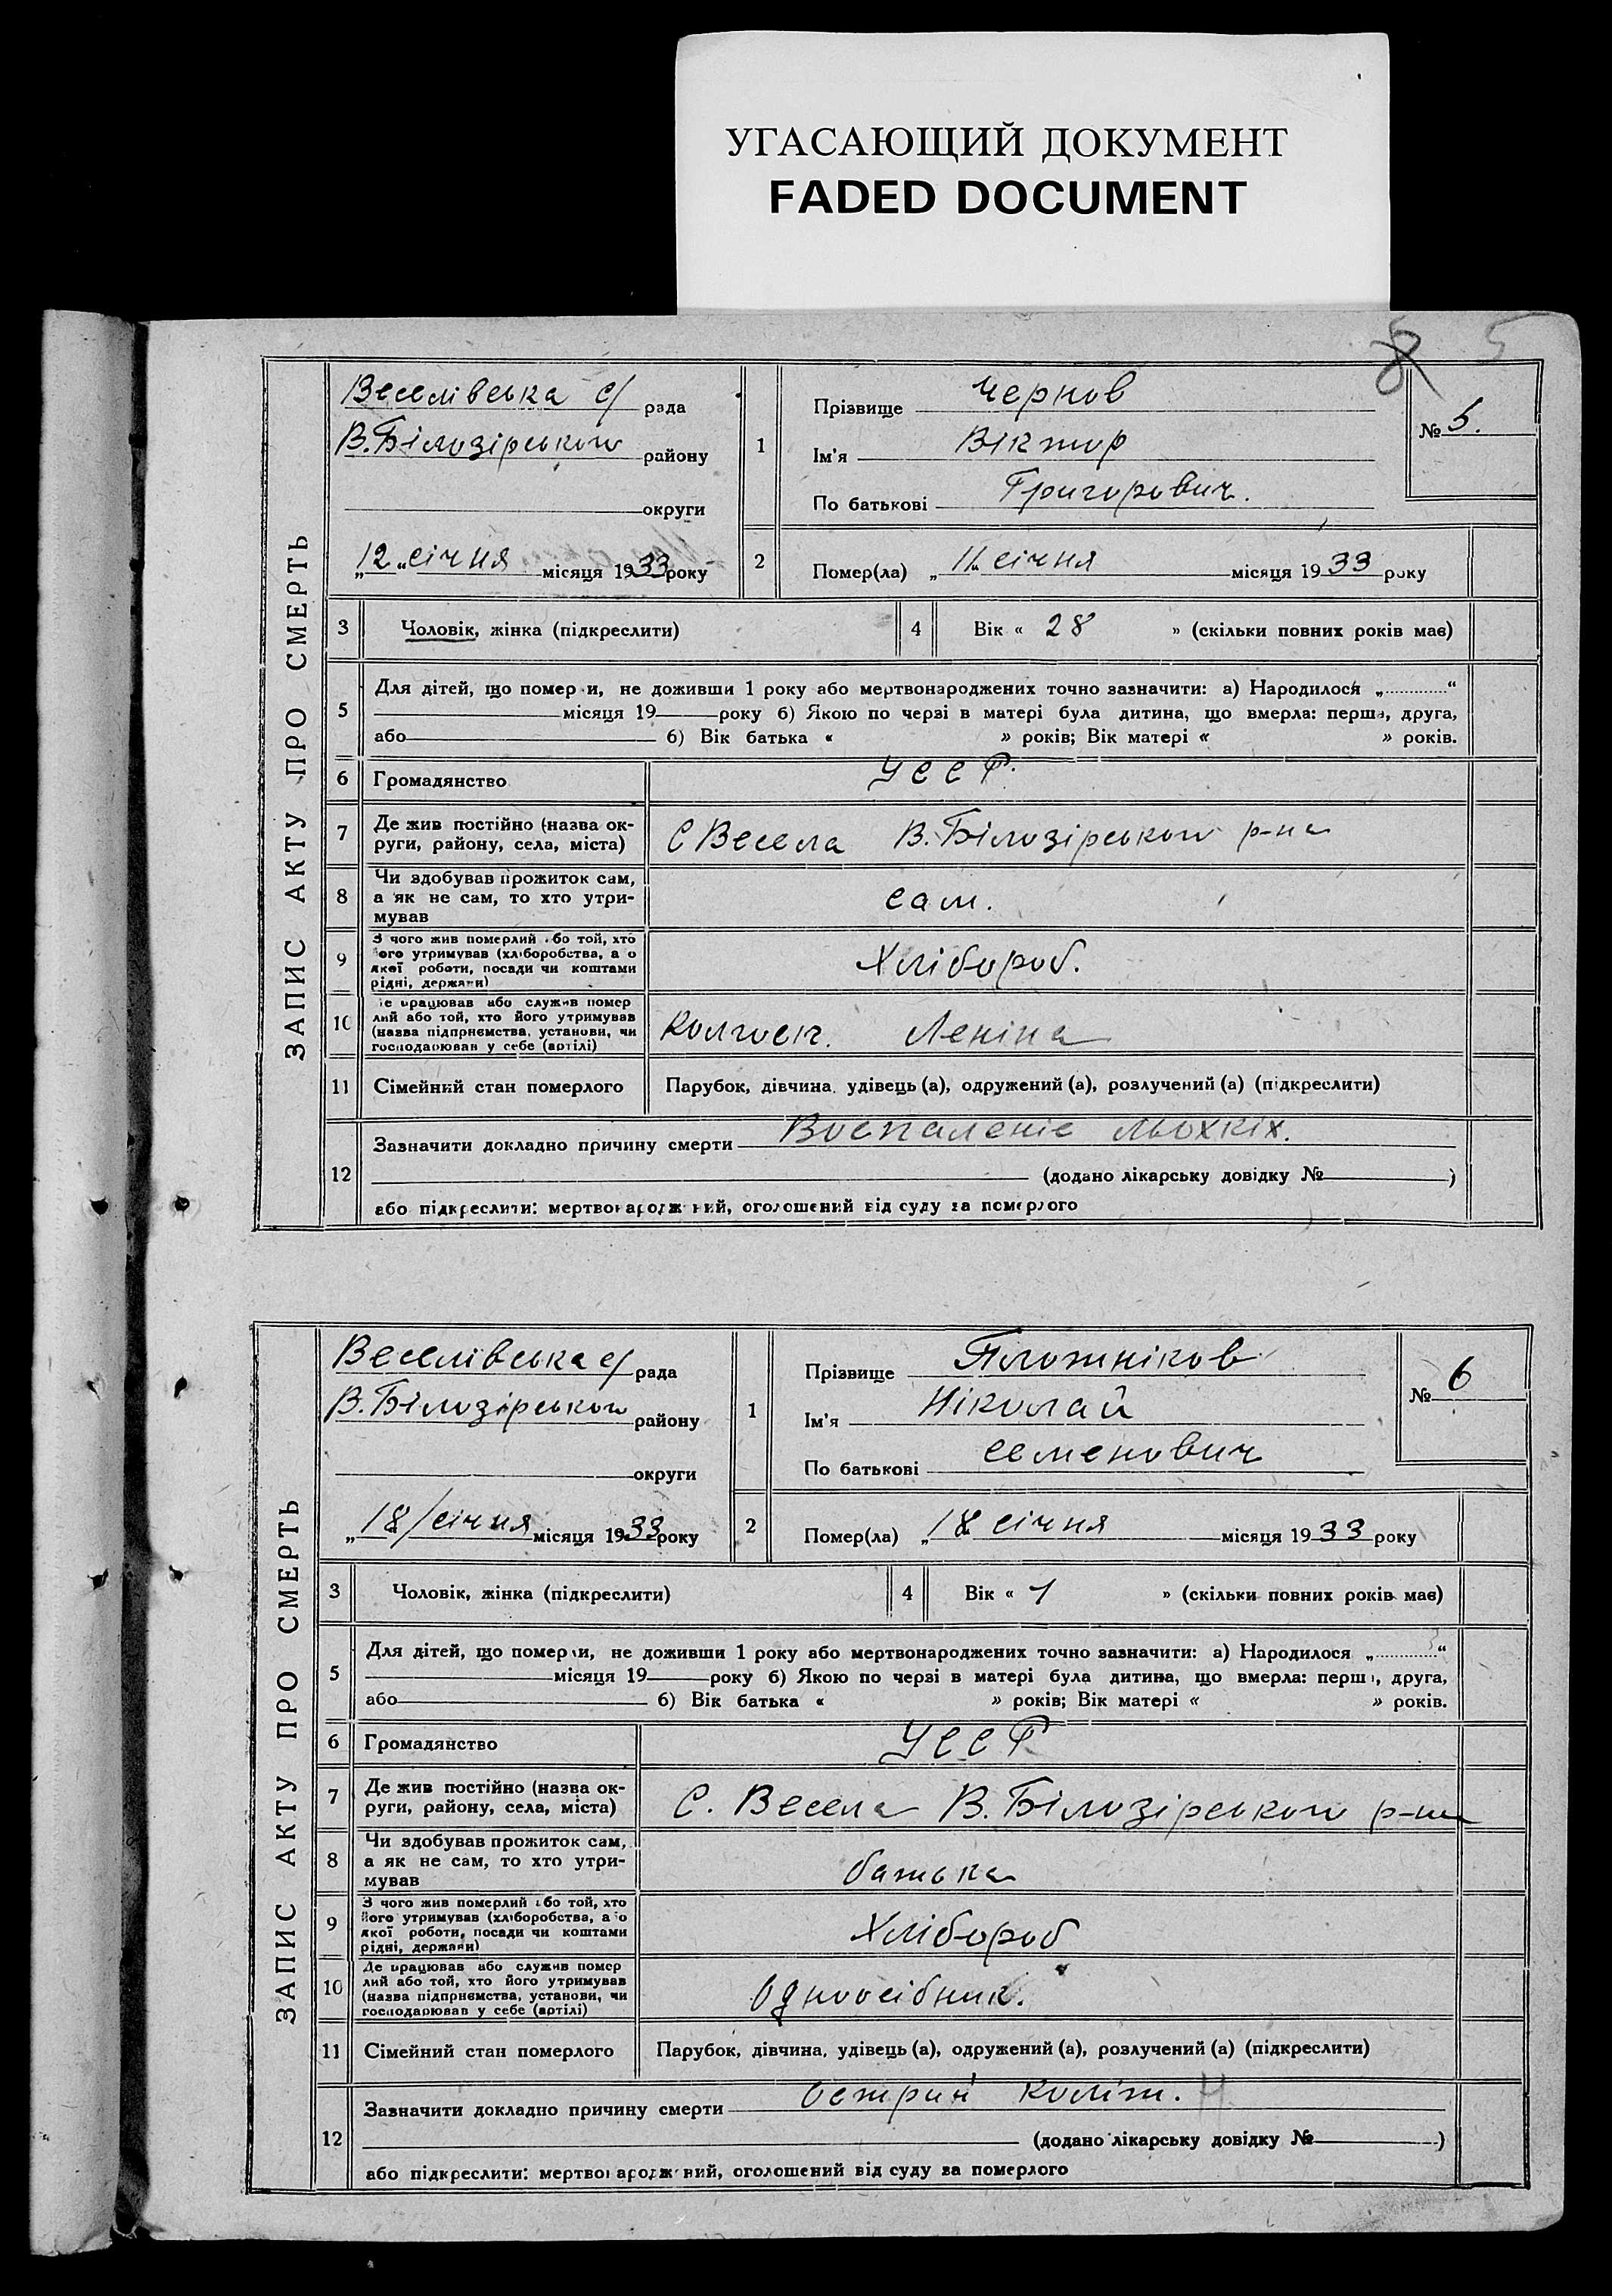 УГАСАЮЩИЙ ДОКУМЕНТ
FADED DOCUMENT
8 5
ЗАПИС АКТУ ПРО СМЕРТЬ
Веселівська с/ рада
В.Білозірського району
округи
„12“ січня місяця 1933 року
1
Прізвище Чернов
Ім'я Віктор
По батькові Григорович.
№ 5.
2 Помер(ла) „11“ січня місяця 1933 року
3 Чоловік, жінка (підкреслити)
4 Вік « 28 » (скільки повних років має)
5 Для дітей, що померли, не доживши 1 року або мертвонароджених точно зазначити: а) Народилося „............“
місяця 19 року б) Якою по черзі в матері була дитина, що вмерла: перша, друга,
або б) Вік батька « » років; Вік матері « » років.
6 Громадянство УССР.
7 Де жив постійно (назва ок-
руги, району, села, міста)
С Весела В.Білозірського р-на
8 Чи здобував прожиток сам,
а як не сам, то хто утри-
мував
сам.
9 З чого жив померлий або той, хто
його утримував (хліборобства, або
якої роботи, посади чи коштами
рідні, держави)
Хлібороб.
10 Де працював або служив помер
лий або той, хто його утримував
(назва підприємства, установи, чи
господарював у себе (артілі)
Колгосп. Леніна
11 Сімейний стан померлого Парубок, дівчина, удівець (а), одружений (а), розлучений (а) (підкреслити)
12 Зазначити докладно причину смерти Воспаленіе льохкіх.
(додано лікарську довідку № )
або підкреслити: мертвонароджений, оголошений від суду за померлого
ЗАПИС АКТУ ПРО СМЕРТЬ
Веселівська с/ рада
В.Білозірського району
округи
„18/ січня місяця 1933 року
1
Прізвище Плотніков
Ім'я Ніколай
По батькові Семенович
№ 6
2 Помер(ла) „18 січня місяця 1933 року
3 Чоловік, жінка (підкреслити)
4 Вік « 1 » (скільки повних років має)
5 Для дітей, що померли, не доживши 1 року або мертвонароджених точно зазначити: а) Народилося „............“
місяця 19 року б) Якою по черзі в матері була дитина, що вмерла: перша, друга,
або б) Вік батька « » років; Вік матері « » років.
6 Громадянство УССР
7 Де жив постійно (назва ок-
руги, району, села, міста)
С. Весела В.Білозірського р-на
8 Чи здобував прожиток сам,
а як не сам, то хто утри-
мував
батька
9 З чого жив померлий або той, хто
його утримував (хліборобства, або
якої роботи, посади чи коштами
рідні, держави)
Хлібороб
10 Де працював або служив помер
лий або той, хто його утримував
(назва підприємства, установи, чи
господарював у себе (артілі)
Одноосібник.
11 Сімейний стан померлого Парубок, дівчина, удівець (а), одружений (а), розлучений (а) (підкреслити)
12 Зазначити докладно причину смерти Острий коліт. Ч
(додано лікарську довідку № )
або підкреслити: мертвонароджений, оголошений від суду за померлого